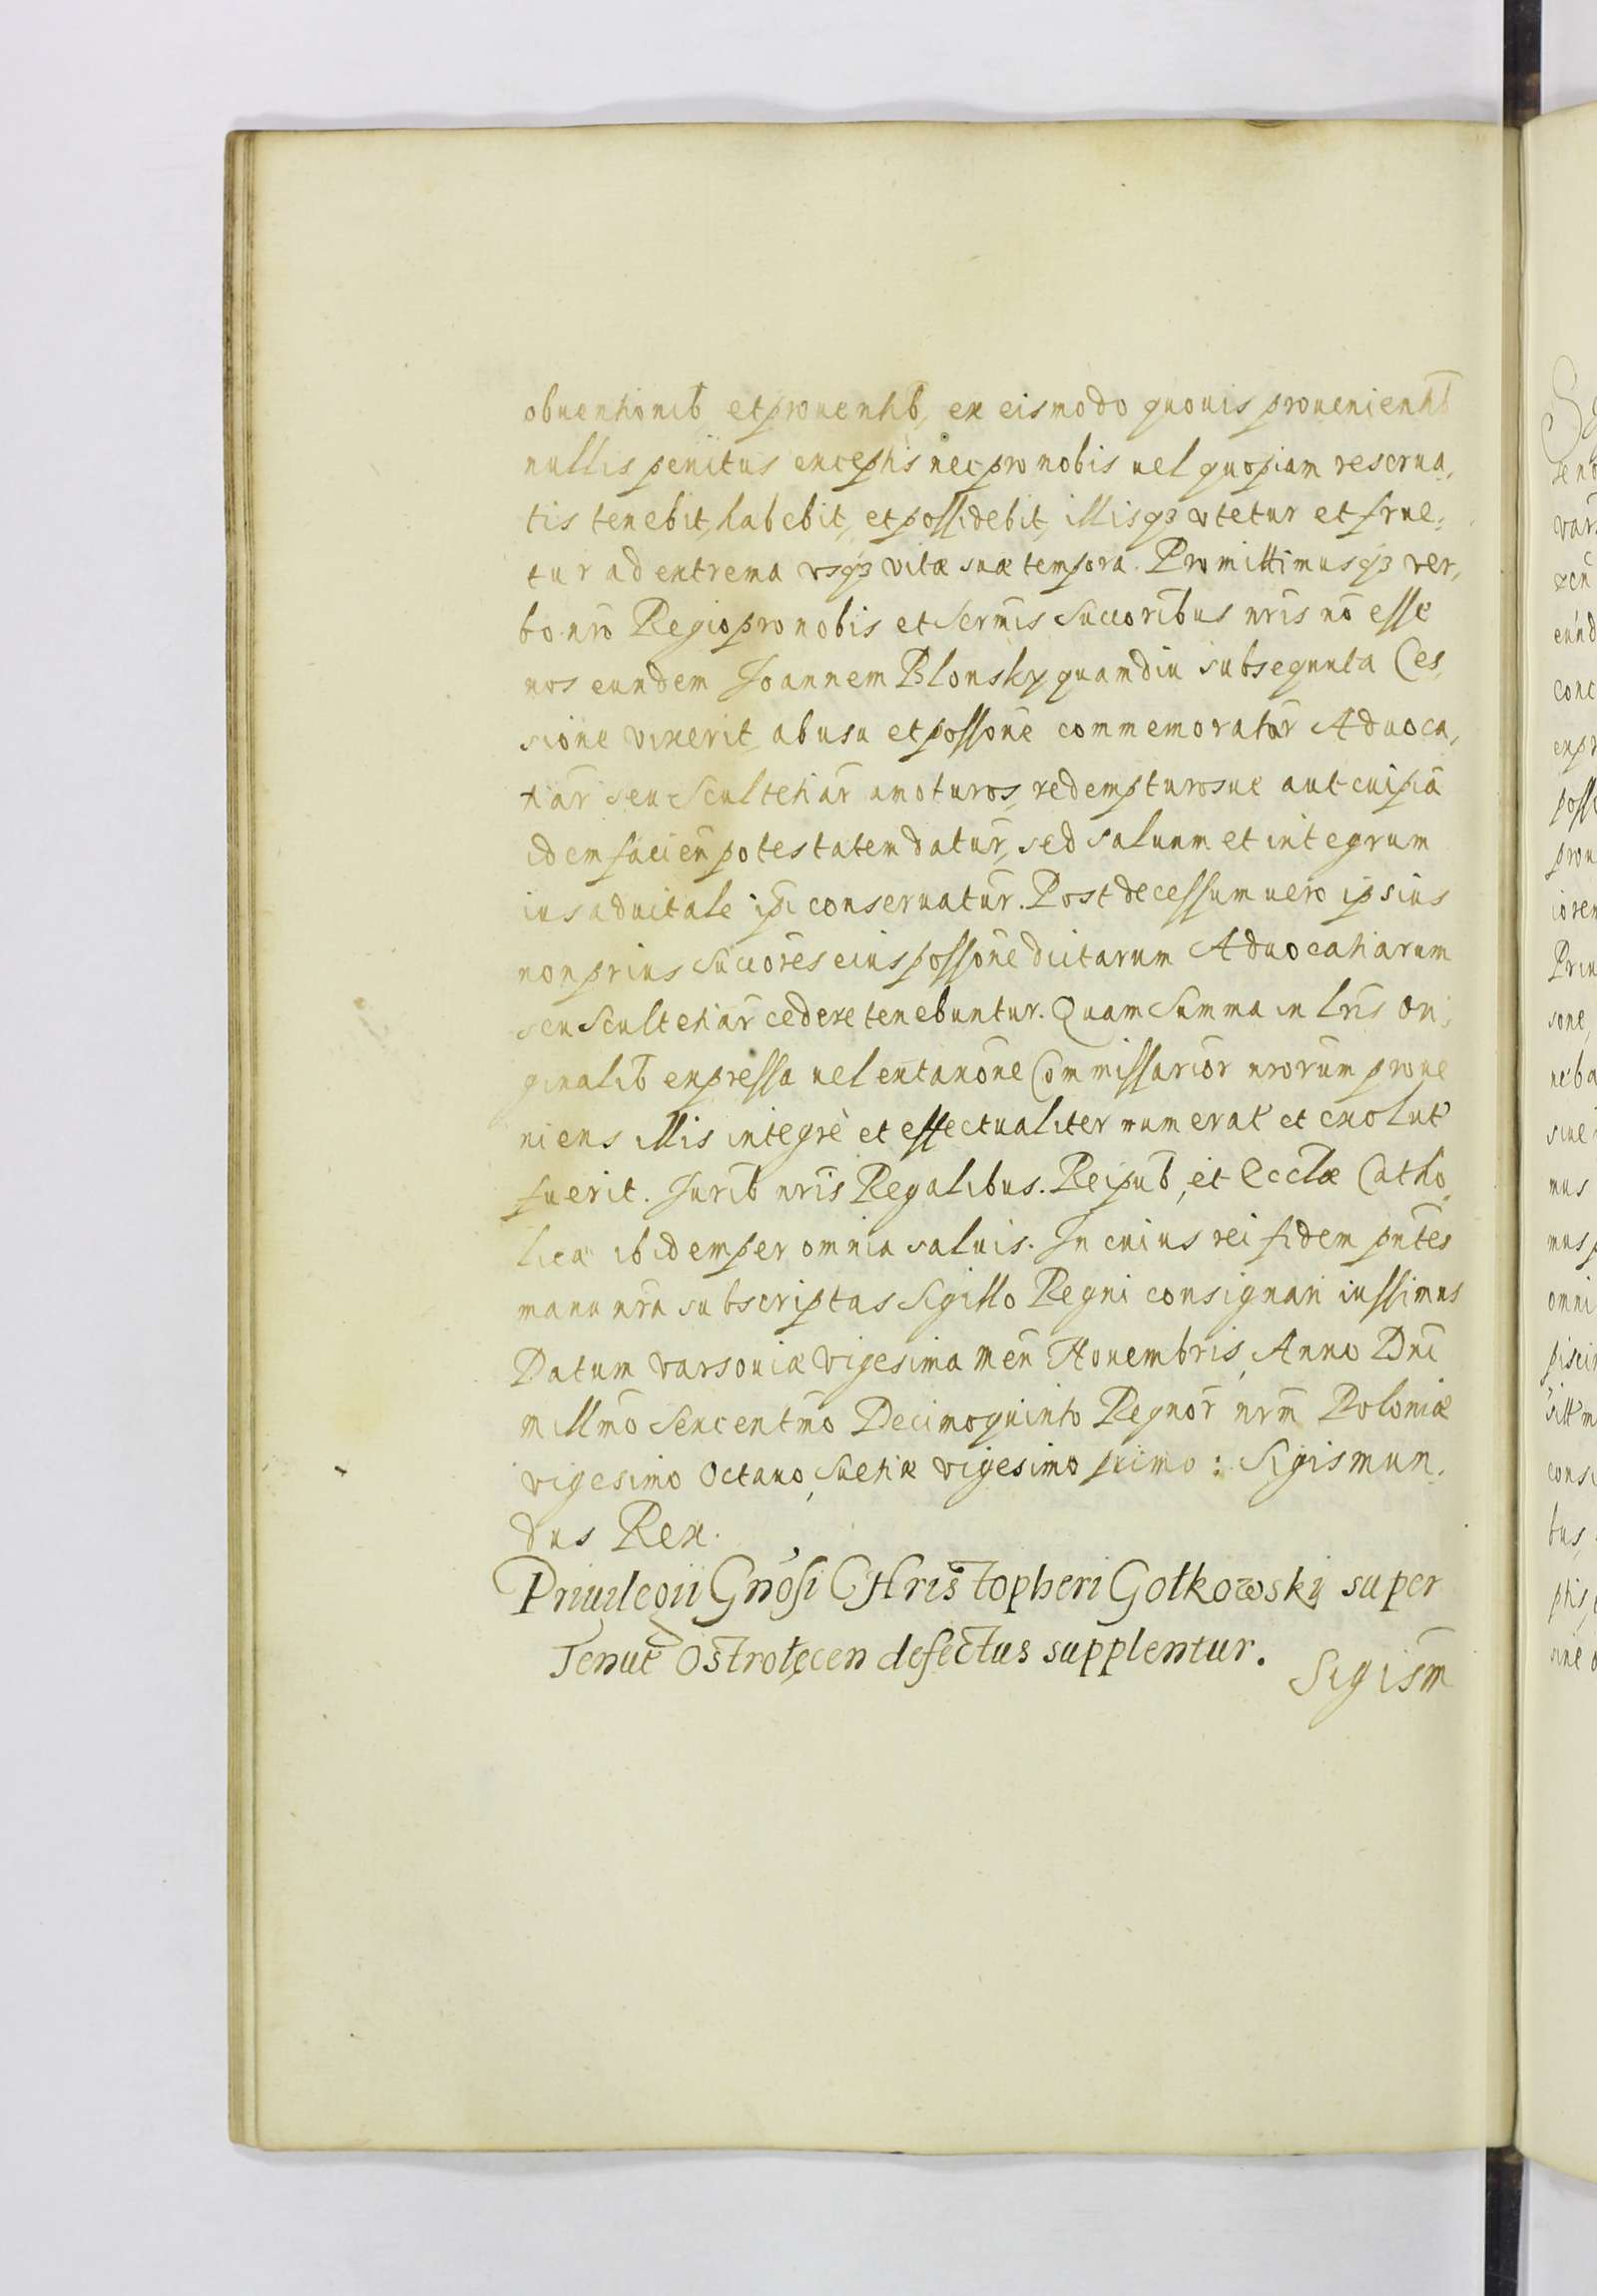 obuentionib, et prouentib, ex eismodo quouis prouenientib
nullis penitus exceptis nec pro nobis uel quopiam reserua,
tis tenebit, habebit, et possidebit, illisqȝ vtetur et frue,
tur ad extrema vsqȝ vitæ suæ tempora. Promittimusqȝ ver,
bo nr̃o Regio pro nobis et Serm̃is Succoribus nr̃is nõ esse
nos eundem Joannem Blonsky quamdiu subsequuta Ces,
sione vixerit, ab usu et possone commemoratar̃ Aduoca,
tiar̃ seu Scultetiar̃ amoturos, redempturosue aut cuipiã
idem facieñ potestatem datur̃, sed saluum et integrum
ius aduitale ip̃i conseruatur̃. Post decessum uero ipsius
non prius Succores eius possone dictarum Aduocatiarum
seu Scultetiar̃ cedere tenebuntur. Quam Summa in lr̃is Ori,
ginalib expressa uel ex taxõne Commissarior̃ nr̃orum proue
niens illis integrè et effectualiter numerat et exolut
fuerit. Jurib nr̃is Regalibus. Reipub, et Ecclæ Catho,
licæ ibidem per omnia saluis. In cuius rei fidem pñtes
manu nr̃a subscriptas Sigillo Regni consignari iussimus
Datum varsouiæ vigesima Meñ Nouembris, Anno Dñi
millm̃o Sexcentm̃o Decimoquinto Regnor̃ nr̃m Poloniæ
vigesimo Octauo, Suetiæ vigesimo primo: Sigismun,
dus Rex.
Priuilegii Gñosi CHristopheri Gołkowsky super
Tenut Ostrołęcen defectus supplentur.
Sigism̃